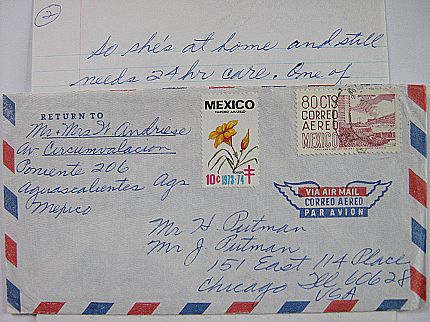 2
So she's at home and still
needs 24 hr care. One of
RETURN TO
Mr. + Mrs W. Andriese
Av. Circumvalacion
Poniente 206
Aguascalientes Ags
Mexico
MEXICO
10¢ 1973-74
80 CTS
CORREO
AEREO
MEXICO
VIA AIR MAIL
CORREO AEREO
PAR AVION
Mr H. Putman
Mr J. Putman
151 East 114 Place
Chicago Ill 60628
USA